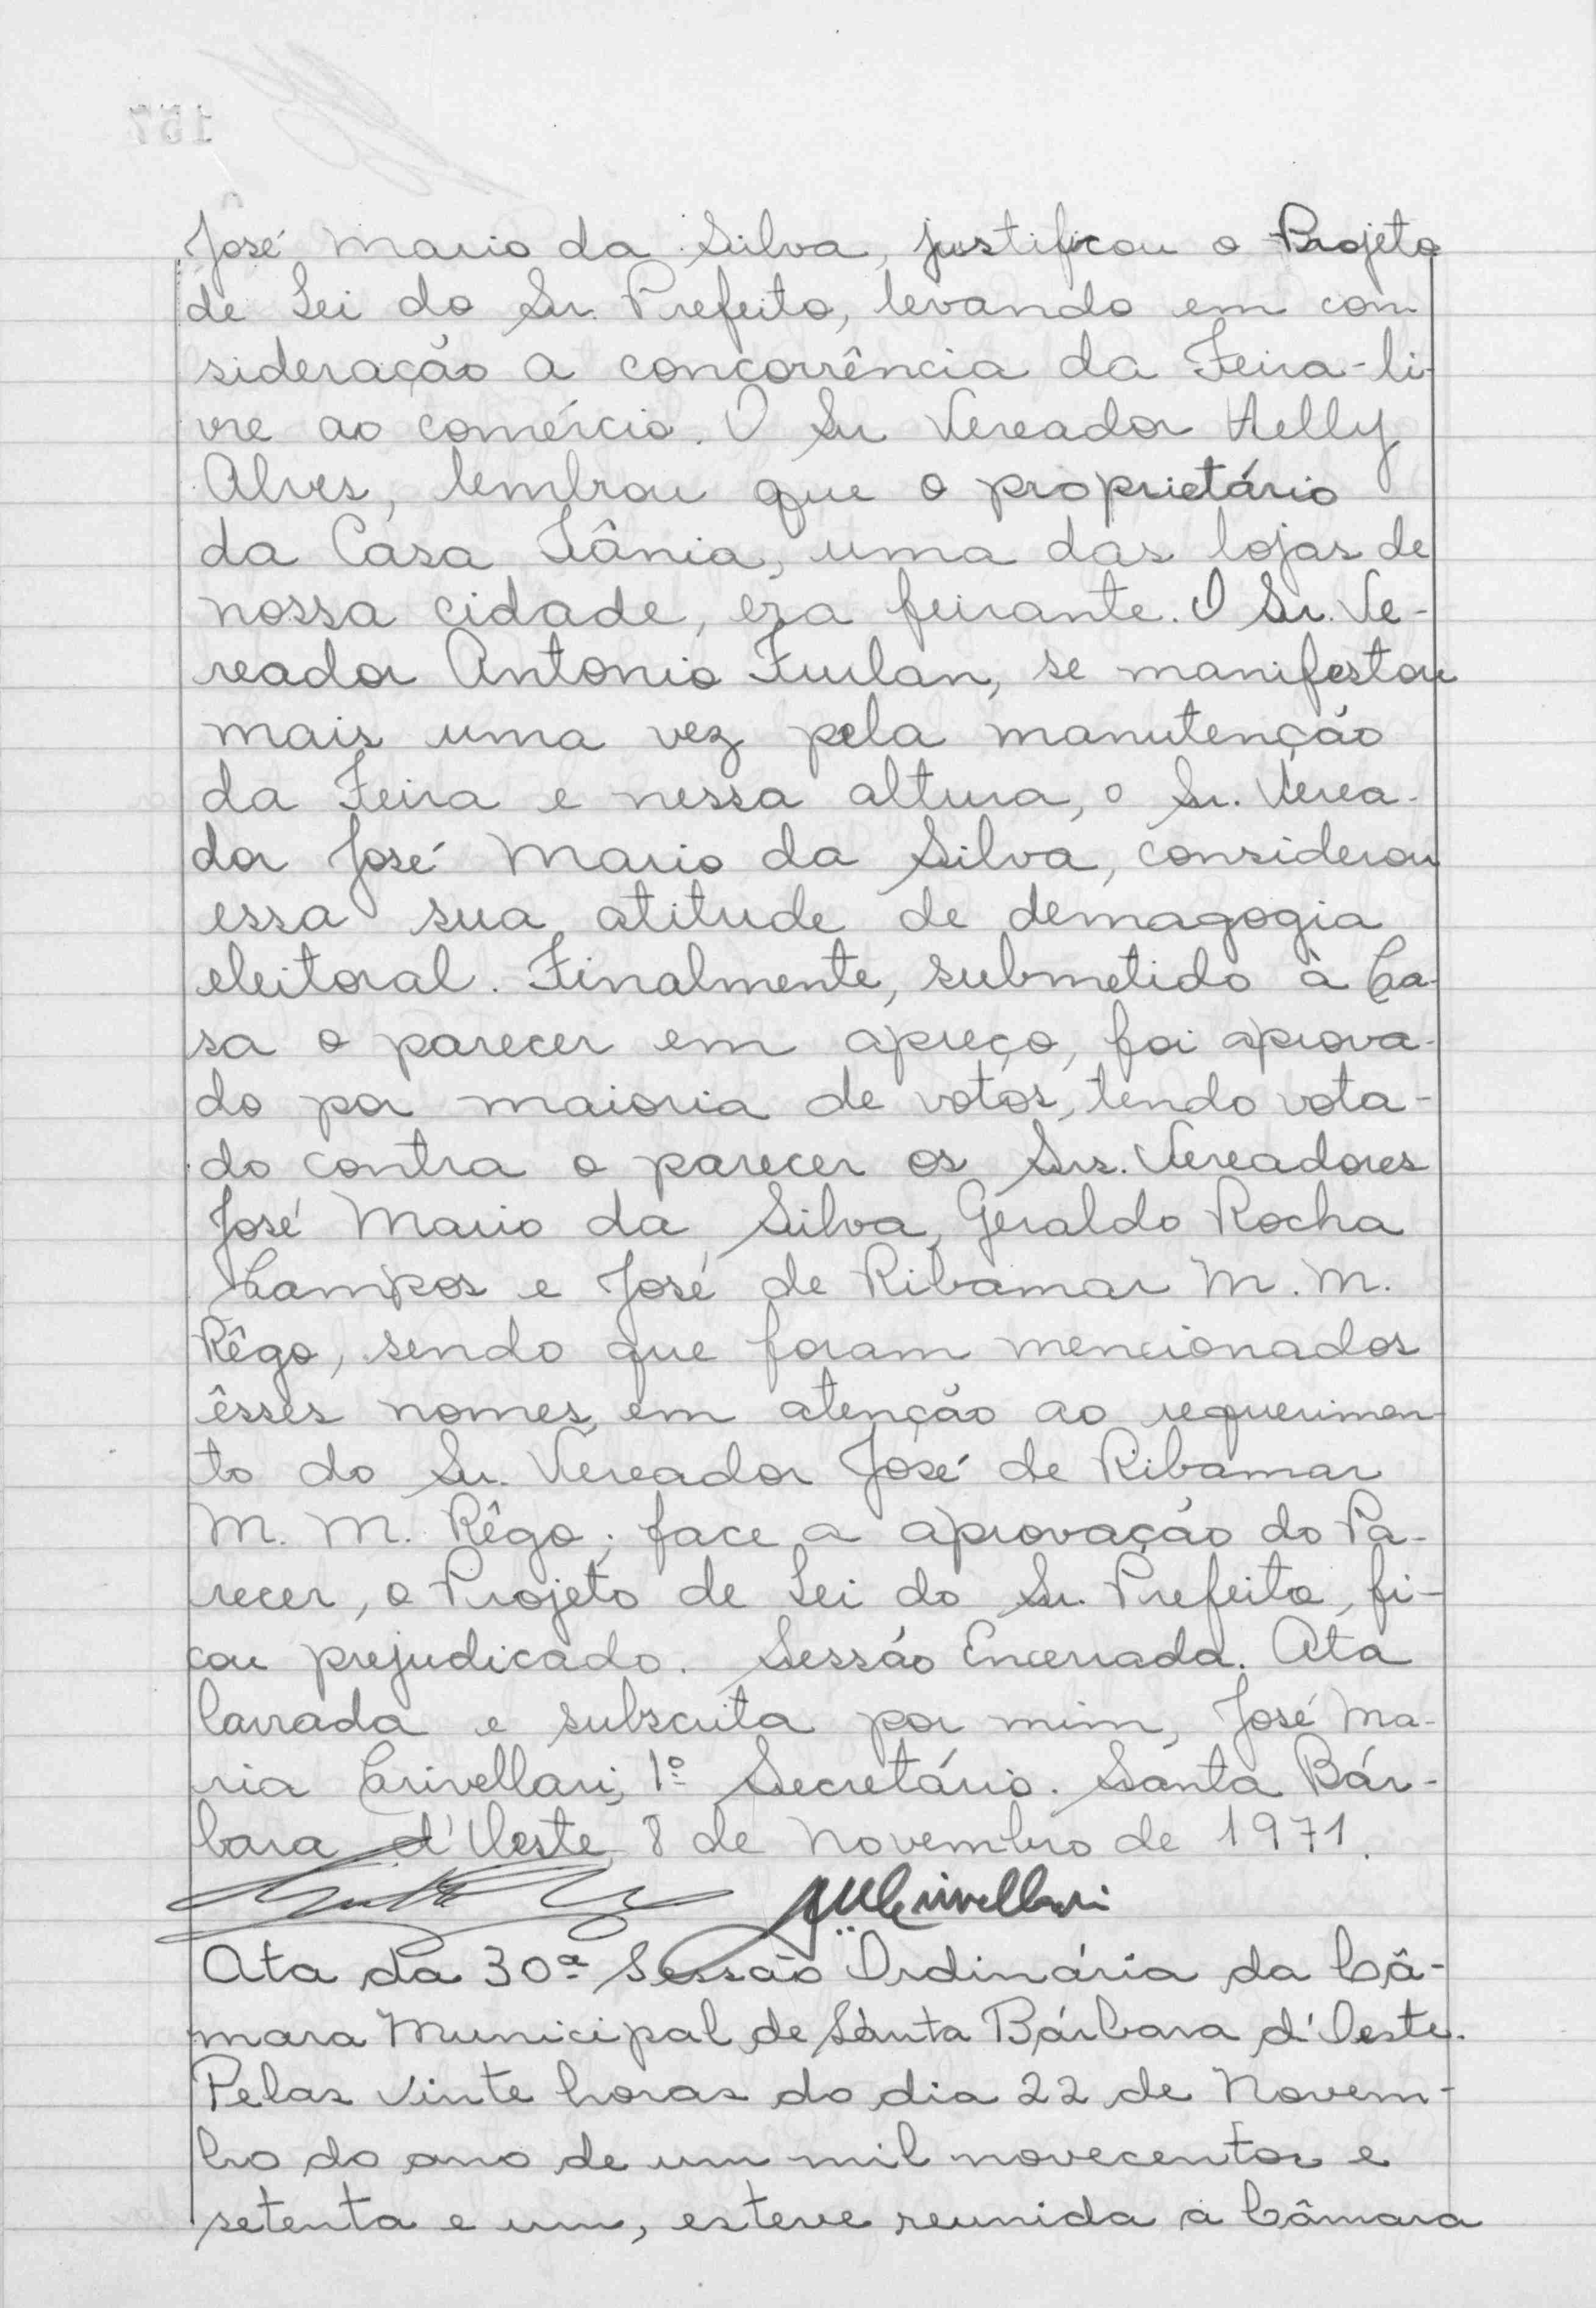 José Mario da Silva, justificou o Projeto
de Lei do Sr. Prefeito, levando em con
sideração a concorrência da Feira-li-
vre ao comércio. O Sr Vereador Helly
Alves, lembrou que o proprietário
da Casa Tânia, uma das lojas de
nossa cidade, era feirante. O Sr. Ve-
reador Antonio Furlan, se manifestou
mais uma vez pela manutenção
da Feira e nessa altura, o Sr. Verea-
dor José Mario da Silva, considerou
essa sua atitude de demagogia
eleitoral. Finalmente, submetido à Ca-
sa o parecer em apreço, foi aprova-
do por maioria de votos, tendo vota-
do contra o parecer os Srs. Vereadores
José Mario da Silva, Geraldo Rocha
Campos e José de Ribamar M. M.
Rêgo, sendo que foram mencionados
êsses nomes, em atenção ao requerimen
to do Sr. Vereador José de Ribamar
M. M. Rêgo; face a aprovação do Pa-
recer, o Projeto de Lei do Sr. Prefeito, fi-
cou prejudicado. Sessão Encerrada. Ata
lavrada e subscrita por mim, José Ma-
ria Crivellari, 1º Secretário. Santa Bár-
bara d'Oeste, 8 de Novembro de 1971.
JMCrivellari
Ata da 30ª Sessão Ordinária da Câ-
mara Municipal de Santa Bárbara d'Oeste.
Pelas vinte horas do dia 22 de Novem-
bro do ano de um mil novecentos e
setenta e um, esteve reunida a Câmara